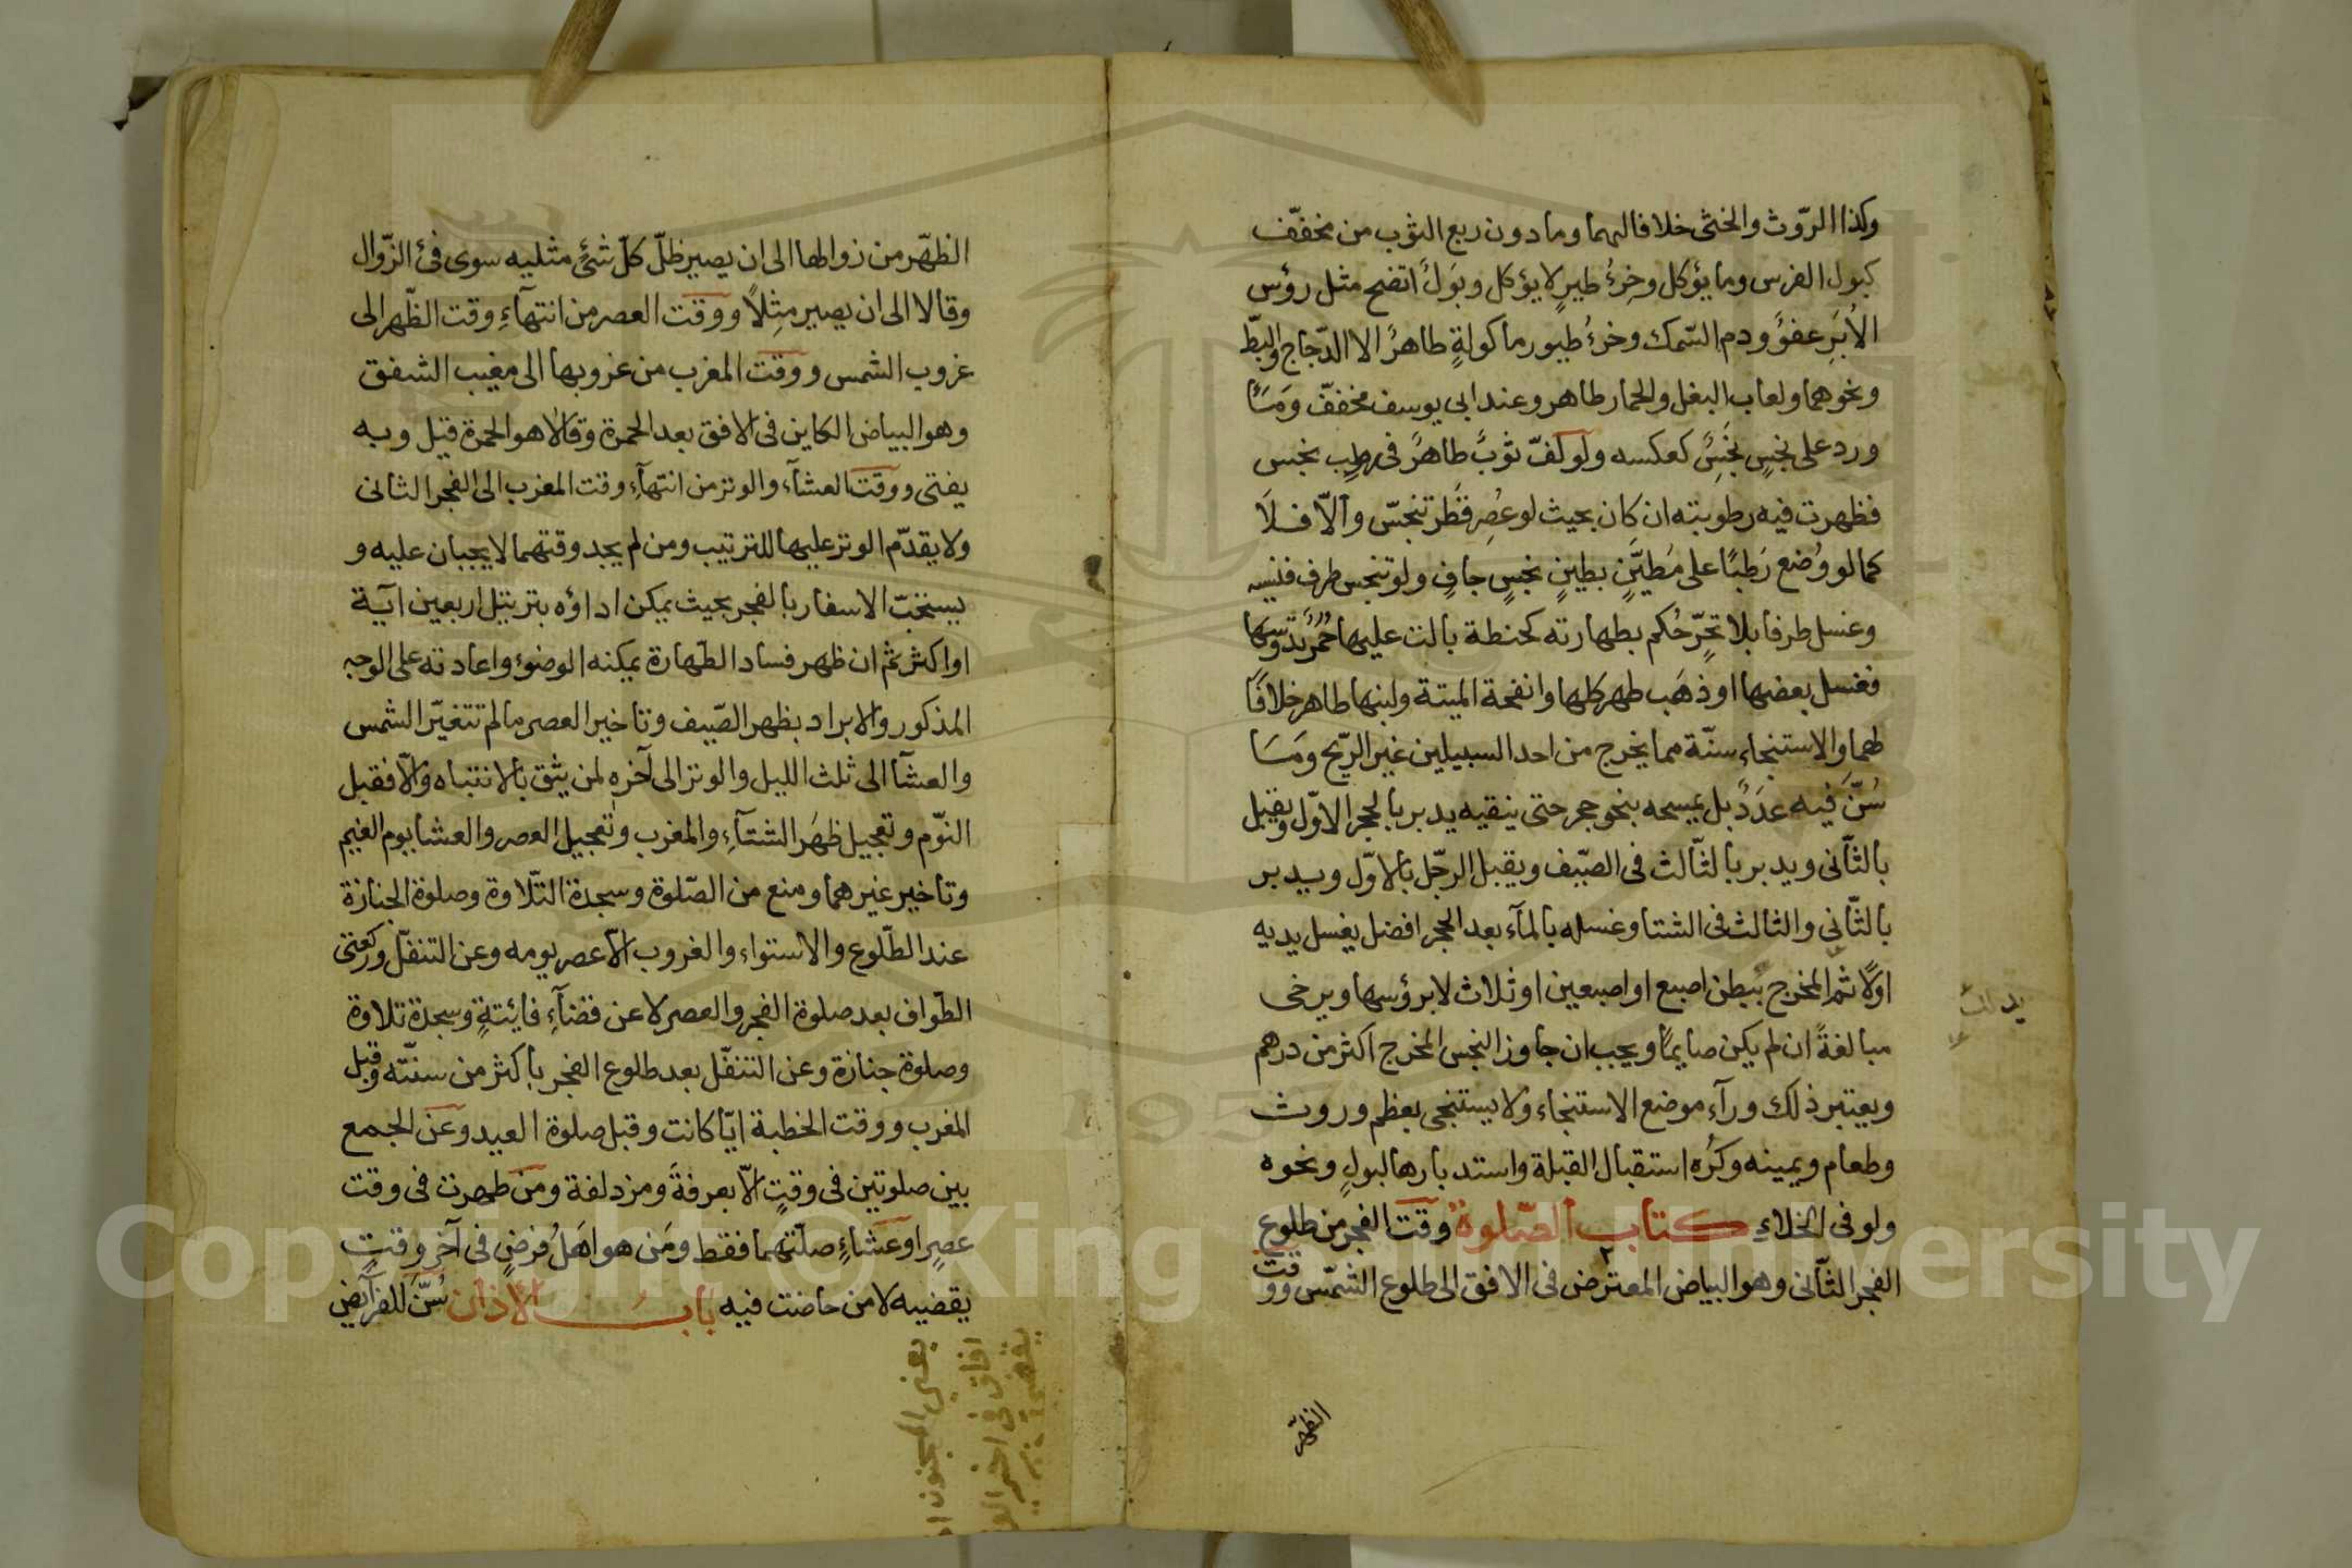 وكذا الرّوث والخثى خلافا لهما وما دون ربع الثوب من مخفّف
كبول الفرس وما يؤكل وخرءُ طيرٍ لا يؤكل وبَولٌ انتضح مثل رؤس
الاُبَرِ عفوٌ ودم السّمك وخرءُ طيور ماكولةٍ طاهرٌ الا الدّجاج والبطّ
ونحوهما ولعاب البغل والحمار طاهر وعند ابى يوسف مخففّ ومَآءٌ
ورد على نجسٍ نجَسٌ كعكسه ولو لُفّ ثوبٌ طاهرٌ فى رطبٍ نجس
فظهرت فيه رطوبته ان كان بحيث لو عُصِر قَطَر تنجّس وآلّا فلَا
كما لو وُضع رَطبًا على مُطَيَّنٍ بطينٍ نجسٍ جافٍ ولو تنجس طرف فنسيه
وغسل طرفا بلا تحرٍّ حُكم بطهارته كحنطة بالت عليها حُمُرٌ تدوسها
فغسل بعضها او ذهَب طهر كلها وانفحة الميتة ولبنها طاهر خلافًا
لهما والاستنجاء سنّة مما يخرج من احد السبيلين غير الرّيح ومَا
سُنَّ فيه عدَدٌ بل يمسحه بنحو حجر حتى ينقيه يدبر بالحجر الاوّل ويقبل
بالثّانى ويدبر بالثّالث فى الصّيف ويقبل الرجّل بالاوّل ويدبر
بالثّانى والثالث فى الشتا وغسله بالمآء بعد الحجر افضل يغسل يديه
اولًا ثم المخرج ببطن اصبع او اصبعين او ثلاث لا برؤسها ويرخى
مبالغةً ان لم يكن صايمًا ويجب ان جاوز النجس المخرج اكثر من درهم
ويعتبر ذلك ورآء موضع الاستنجاء ولا يستنجى بعظم وروث
وطعام ويمينه وكُرِه استقبال القبلة واستدبارها لبولٍ ونحوه
ولو فى الخلاء كتاب الصّلوة وقت الفجر من طلوع
الفجر الثّانى وهو البياض المعترض فى الافق الى طلوع الشمّس ووقت
الظّهر
الظهّر من زوالها الى ان يصير ظلّ كلّ شئٍ مثليه سوى فئ الزّوال
وقالا الى ان يصير مِثِلاً ووقت العصر من انتهآءِ وقت الظّهر الى
غروب الشمس ووقت المغرب من غروبها الى مغيب الشفق
وهو البياض الكاين فى الافق بعد الحمرة وقالا هو الحمرة قيل وبه
يفتى ووقت العشآء والوتر من انتهآءِ وقت المغرب الى الفجر الثانى
ولا يقدّم الوتر عليها للترتيب ومن لم يجد وقتهما لا يجبان عليه و
يستحبّ الاسفار بالفجر بحيث يمكن اداؤه بترتيل اربعين آية
او اكثر ثم ان ظهر فساد الطّهارة يمكنه الوضوء واعادته على الوجه
المذكور والابراد بظهر الصّيف وتاخير العصر ما لم تتغيّر الشمس
والعشآ الى ثلث الليل والوتر الى آخره لمن يثق بالانتباه والّا فقبل
النّوم وتعجيل ظهَر الشتآءِ والمغرب وتعجيل العصر والعشا يوم الغيم
وتاخير غيرهما ومنع من الصّلوة وسجدة التّلاوة وصلوة الجنازة
عند الطّلوع والاستواء والغروب الّا عصر يومه وعن التنفّل وركعتى
الطّواف بعد صلوة الفجر والعصر لا عن قضآءِ فائتةٍ وسجدة تلاوة
وصلوة جنازة وعن التنفّل بعد طلوع الفجر باكثر من سنّته وقبل
المغرب ووقت الخطبة ايّا كانت وقبل صلوة العيد وعن الجمع
بين صلوتين فى وقتٍ الّا بعرفةَ ومزدلفة ومن طهرت فى وقت
عصرٍ او عشاءٍ صلّتهما فقط ومَن هو اهَلُ فرضٍ فى آخر وقتٍ
يقضيه لا من حاضت فيه باب الاذان سُنَّ للفرآيض
يعنى المجنون
افاق فى اخر